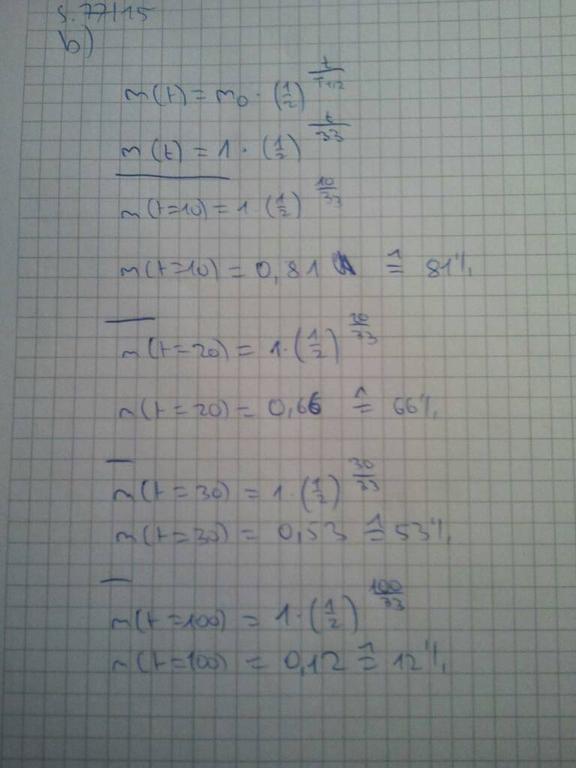 S. 77/15
b)
m(t) = m₀ · (1/2)^(t/T1/2)
m(t) = 1 · (1/2)^(t/33)
m(t=10) = 1 · (1/2)^(10/33)
m(t=10) = 0,81 ≙ 81%
m(t=20) = 1 · (1/2)^(20/33)
m(t=20) = 0,66 ≙ 66%
m(t=30) = 1 · (1/2)^(30/33)
m(t=30) = 0,53 ≙ 53%
m(t=100) = 1 · (1/2)^(100/33)
m(t=100) = 0,12 ≙ 12%